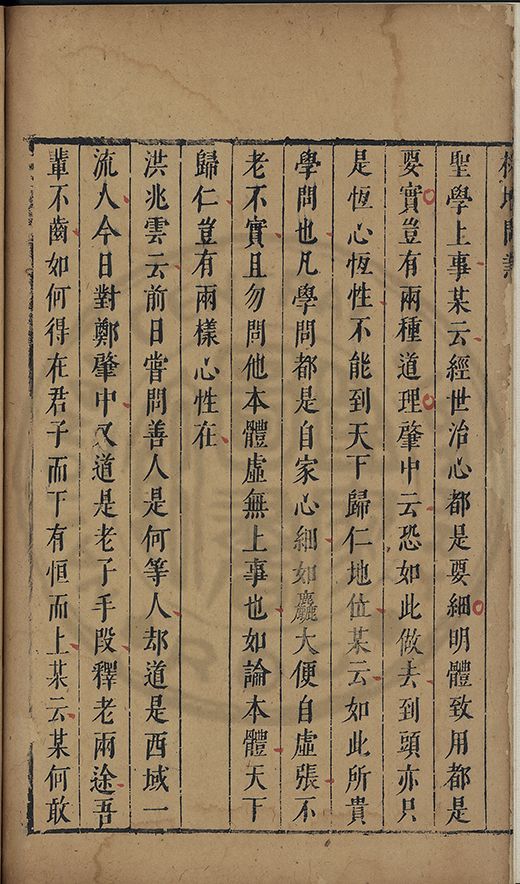 聖學上事某云經世治心都是要細明體致用都是
要實豈有兩種道理肇中云恐如此做去到頭亦只
是恆心恆性不能到天下歸仁地位某云如此所貴
學問也凡學問都是自家心細如麤大便自虛張不
老不實且勿問他本體虛無上事也如論本體天下
歸仁豈有兩樣心性在
洪兆雲云前日嘗問善人是何等人却道是西域一
流人今日對鄭肇中又道是老子手段釋老兩途吾
輩不齒如何得在君子而下有恒而上某云某何敢